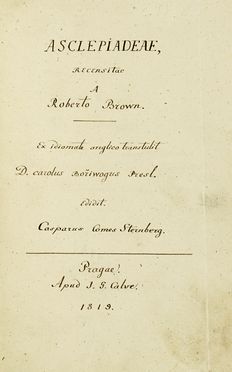 ASCLEPIADEAE,
RECENSITAE
A
Roberto Brown.
Ex idiomate anglico transtulit
D. carolus Bořiwogus Presl.
Edidit
Casparus Comes Sternberg.
Pragae.
Apud J. G. Calve.
1819.